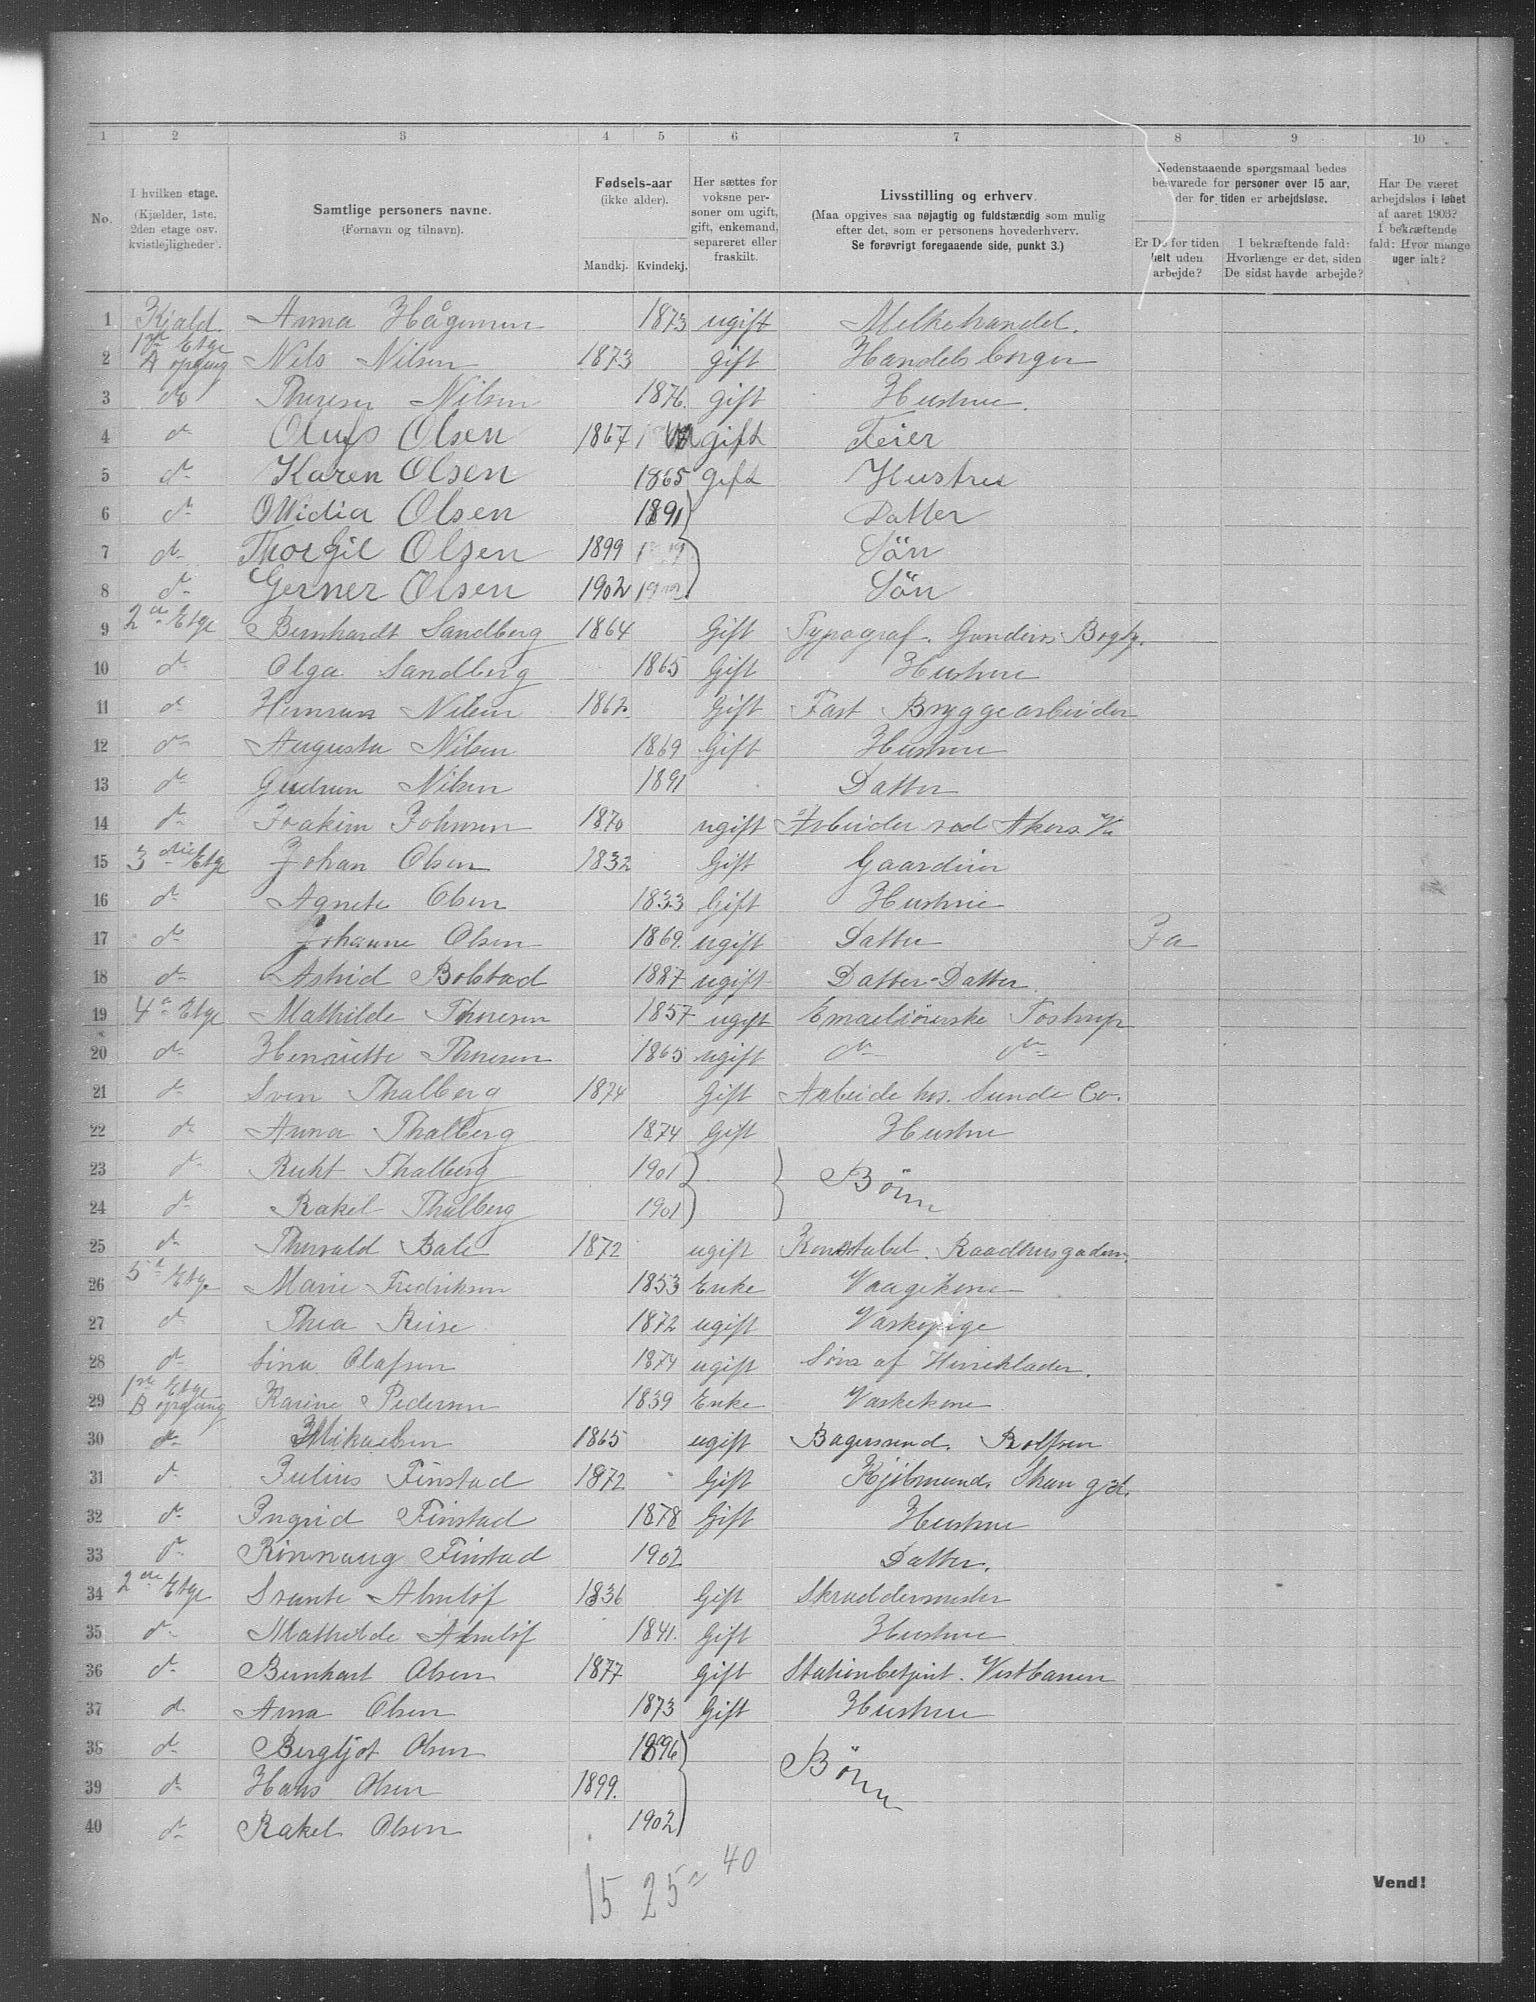 1 2 3 4 5 6 7 8 9 10
No.
I hvilken etage. (Kjælder, 1ste, 2den etage osv. kvistlejligheder).
Samtlige personers navne. (Fornavn og tilnavn).
Fødsels-aar (ikke alder).
Mandkj. Kvindekj.
Her sættes for voksne personer om ugift, gift, enkemand, separeret eller fraskilt.
Livsstilling og erhverv. (Maa opgives saa nøjagtig og fuldstændig som mulig efter det, som er personens hovederhverv. Se forøvrigt foregaaende side, punkt 3.)
Nedenstaaende spørgsmaal bedes besvarede for personer over 15 aar, der for tiden er arbejdsløse.
Er De for tiden helt uden arbejde?
I bekræftende fald: Hvorlænge er det, siden De sidst havde arbejde?
Har De været arbejdsløs i løbet af aaret 1903? I bekræftende fald: Hvor mange uger ialt?
1 Kjæld. Anna Hågensen 1873 ugift Melkehandel.
2 1ste Etge A opgang Nels Nilsen 1873 gift Handelsborger
3 do Therese Nilsen 1876. gift Hustrue.
4 do Olufs Olsen 1867 gift Feier
5 do Karen Olsen 1865 gift Hustru
6 do Ovidia Olsen 1891 Datter
7 do Thorgil Olsen 1899 Sön
8 do Gerner Olsen 1902 Sön
9 2den Etge Bernhardt Sandberg 1864 Gift Typograf. Bogtr.
10 do Olga Sandberg 1865 Gift Hustrue
11 do Herman Nilsen 1862. Gift Fast Bryggearbeider
12 do Augusta Nilsen 1869 Gift Hustrue
13 do Gudrun Nilsen 1891 Datter
14 do Joakim Johnsen 1870 ugift Arbeider ved Akers V.
15 3die Etge Johan Olsen 1832 Gift Gaardeier
16 do Agnete Olsen 1833 Gift Hustrue
17 do Johanne Olsen 1869. ugift Datter Ja
18 do Astrid Bolstad 1887 ugift Datter-Datter.
19 4de Etge Mathilde Thoresen 1857 ugift Emaeliörerske Tostrup
20 do Henriette Thoresen 1865 ugift do do
21 do Sven Thalberg 1874 Gift Arbeide hos. Sunde Co.
22 do Anna Thalberg 1874 Gift Hustru
23 do Ruht Thalberg 1901 Börn
24 do Rakel Thalberg 1901
25 do Thorvald Bale 1872 ugift Konstabel. Raadhusgaden.
26 5te Etge Marie Fredriksen 1853 Enke Vaagekone
27 do Thea Reise 1872 ugift Vaskepige
28 do Sina Olafsen 1874 ugift Söm af Herreklæder.
29 1ste Etge B opgang Karine Pedersen 1839 Enke Vaskekone
30 do Mikaelsen 1865 ugift Bagersvend. Rolfsen
31 do Julius Finstad 1872 Gift Kjöbmand.
32 do Ingrid Finstad 1878 Gift Hustrue
33 do Rinnaug Finstad 1902 Datter.
34 2den Etge Svante Almlöf 1836 Gift Skræddermester
35 do Mathilde Almlöf 1841. Gift Hustrue
36 do Bernhart Olsen 1877 Gift Stationbetjent. Vestbanen
37 do Anna Olsen 1873 Gift Hustrue
38 do Bergljot Olsen 1896 Börn
39 do Hans Olsen 1899.
40 do Rakel Olsen 1902
15 25 40
Vend!